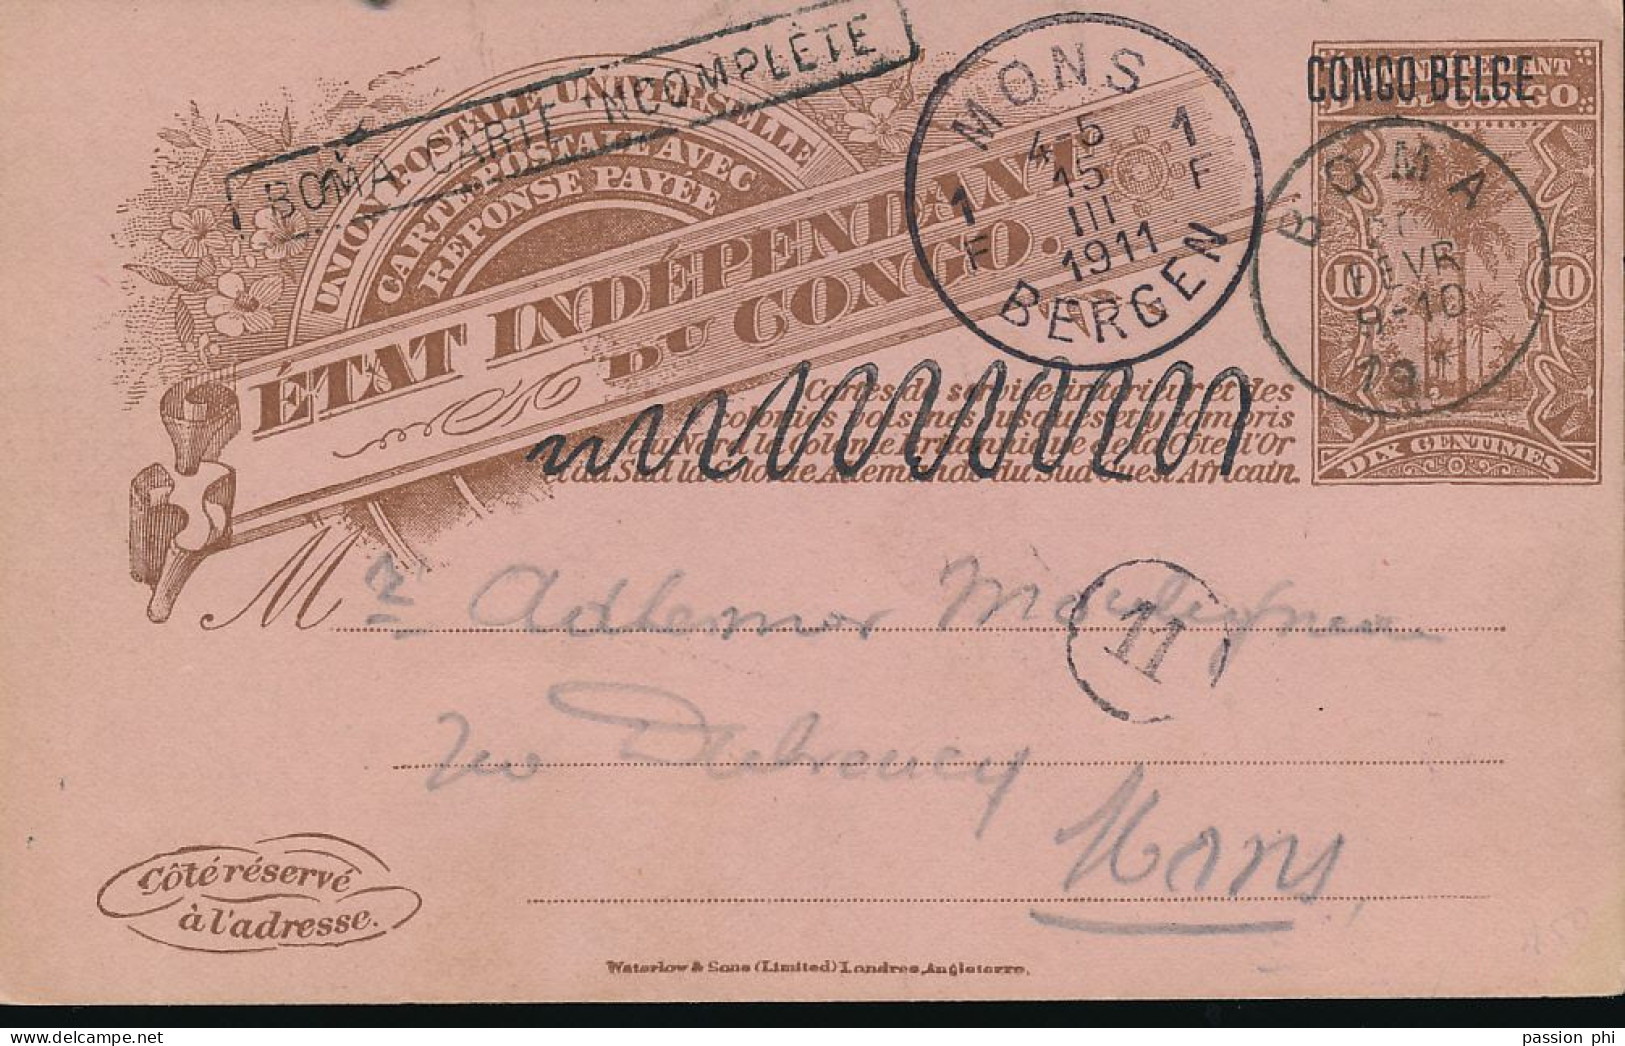 BOMA CARTE INCOMPLÈTE
UNION POSTALE UNIVERSELLE
CARTE POSTALE AVEC
RÉPONSE PAYÉE
ÉTAT INDÉPENDANT
DU CONGO.
MONS
4-5
15
III
1911
1 F
1 F
BERGEN
CONGO BELGE
BOMA
FEVR
8-10
10
10
DIX CENTIMES
Cartes de service intérieur et des
colonies voisines jusques et y compris
au Nord la Colonie Britannique de la Côte d'Or
et au Sud la Colonie Allemande du Sud Ouest Africain.
Mr Adhemar
11
Mons
Côté réservé
à l'adresse.
Waterlow & Sons (Limited) Londres, Angleterre.
passion phi